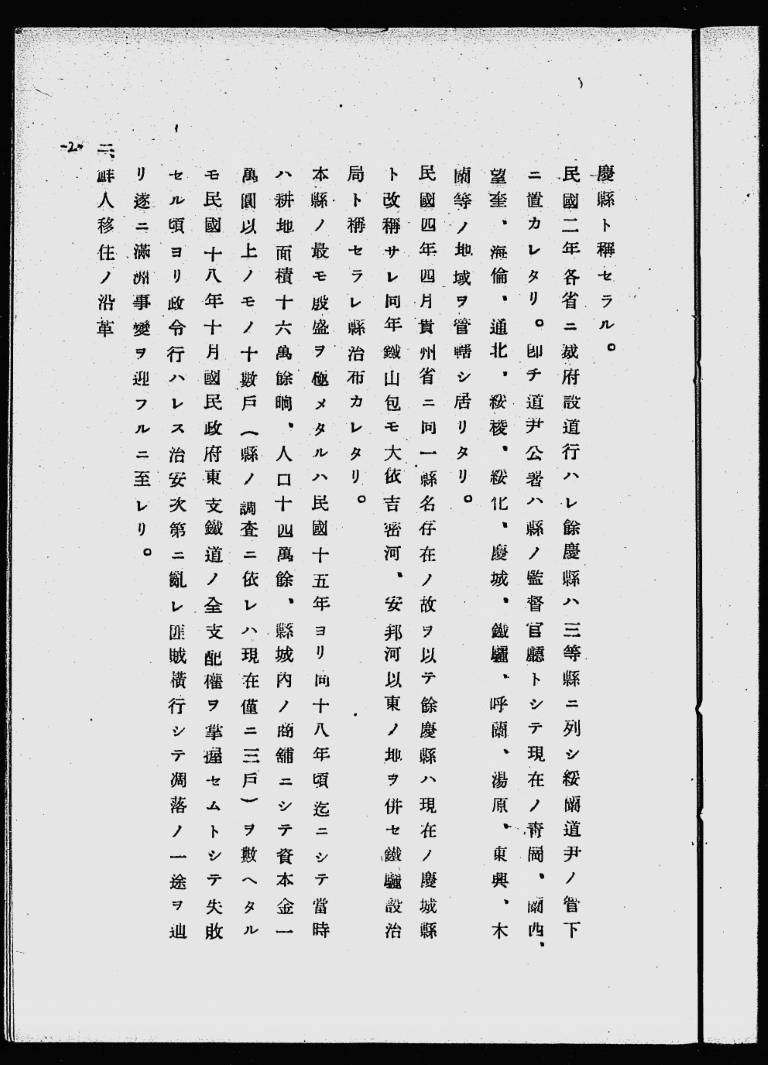 慶縣ト稱セラル。
民國二年各省ニ裁府設道行ハレ餘慶縣ハ三等縣ニ列シ綏蘭道尹ノ管下
ニ置カレタリ。卽チ道尹公署ハ縣ノ監督官廳トシテ現在ノ靑岡、蘭西、
望奎、海倫、通北、綏稜、綏化、慶城、鐵驪、呼蘭、湯原、東興、木
蘭等ノ地域ヲ管轄シ居リタリ。
民國四年四月貴州省ニ同一縣名存在ノ故ヲ以テ餘慶縣ハ現在ノ慶城縣
ト改稱サレ同年鐵山包モ大依吉密河、安邦河以東ノ地ヲ併セ鐵驪設治
局ト稱セラレ縣治布カレタリ。
本縣ノ最モ殷盛ヲ極メタルハ民國十五年ヨリ同十八年頃迄ニシテ當時
ハ耕地面積十六萬餘晌、人口十四萬餘、縣城內ノ商舖ニシテ資本金一
萬圓以上ノモノ十數戶（縣ノ調査ニ依レハ現在僅ニ三戶）ヲ數ヘタル
モ民國十八年十月國民政府東支鐵道ノ全支配權ヲ掌握セムトシテ失敗
セル頃ヨリ政令行ハレス治安次第ニ亂レ匪賊橫行シテ凋落ノ一途ヲ辿
リ遂ニ滿洲事變ヲ迎フルニ至レリ。
二、鮮人移住ノ沿革
-2-